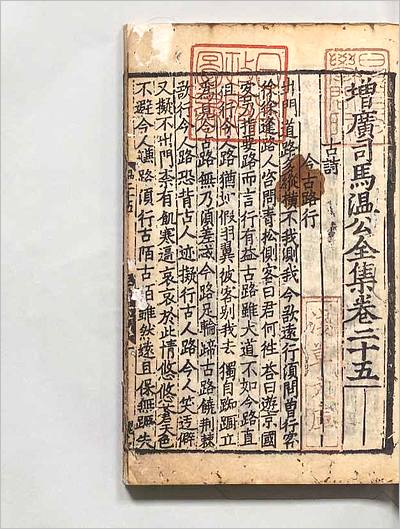 增廣司馬温公全集卷二十五
古詩
今古路行
出門道路多縱横不我測我今欲遠行須問曾行客
徐徐進路人咨問青松側客曰君何徃荅曰遊京國
客乃指要路而言行有益古路雖大道不如今路直
但行今人路猶如假羽翼彼客别我去獨自踟蹰立
今古路無乃須差忒今路足輪蹄古路饒荆棘
欲行今人路恐背古人迹擬行古人路今人笑迂僻
又擬不出門柰有飢寒逼哀哀於此情悠悠蒼天色
不避今人譏路須行古陌古陌雖然遠且保無蹶失